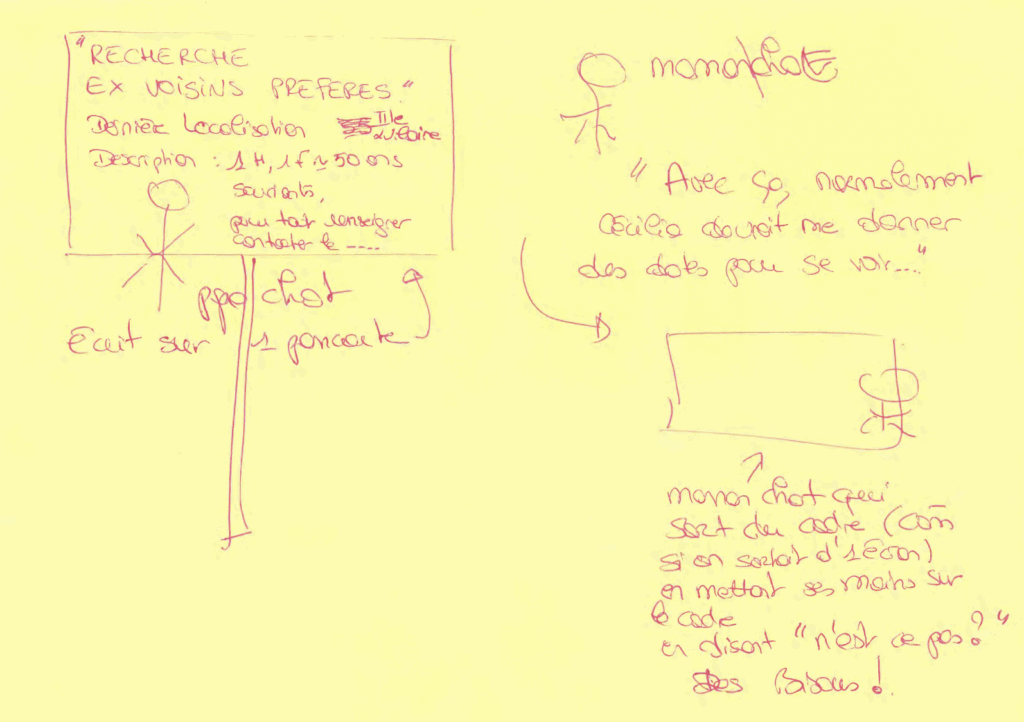 "RECHERCHE
EX VOISINS PREFERES."
Dernière Localisation Ille
&vilaine
Description : 1 H, 1 f ~ 50 ans
souriants,
pour tout renseigner
contacter le ----
papa chat
Ecrit sur 1 pancarte
maman chat
" Avec ça, normalement
Cécilia devrait me donner
des dates pour se voir..."
maman chat qui
sort du cadre (com
si on sortait d'1 Écran)
en mettant ses mains sur
le cadre
en disant "n'est ce pas?"
des Bisous!